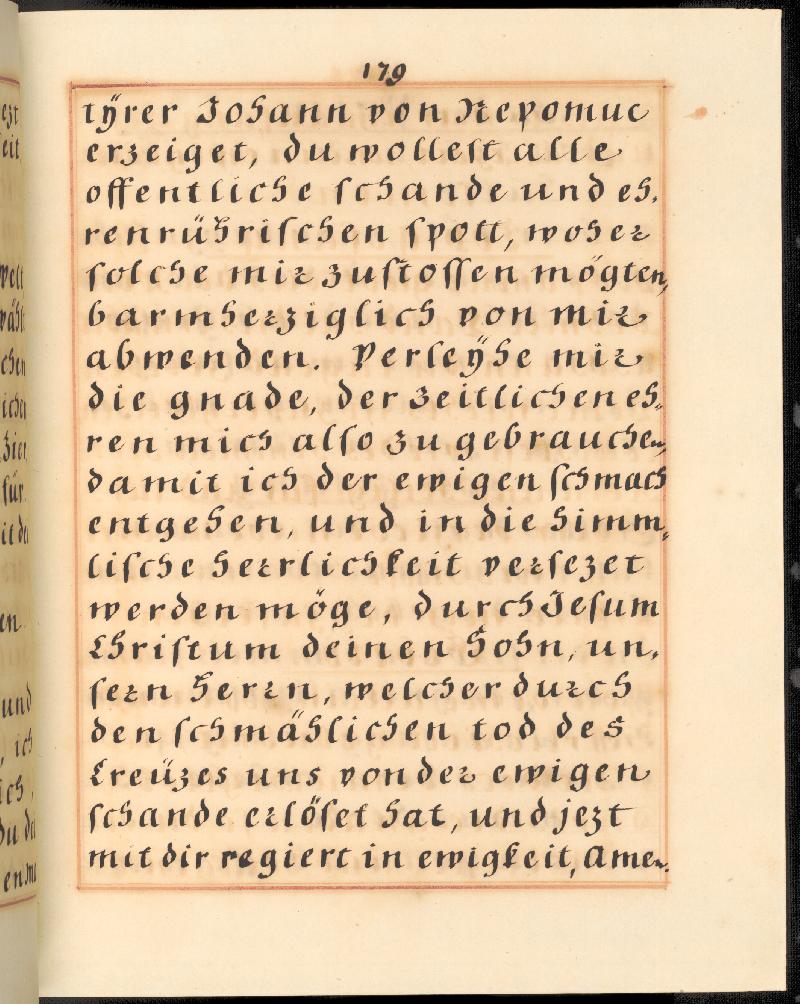 179
tÿrer Johann von Nepomuc
erzeiget, du wollest alle
offentliche schande und eh,
renrührischen spott, woher
solche mir zustossen mögten,
barmherziglich von mir
abwenden. Verleÿhe mir
die gnade, der zeitlichen eh,
ren mich also zu gebrauchen,
damit ich der ewigen schmach
entgehen, und in die himm,
lische herrlichkeit versezet
werden möge, durch Jesum
Christum deinen Sohn, un,
sern herrn, welcher durch
den schmählichen tod des
Creüzes uns von der ewigen
schande erlöset hat, und jezt
mit dir regiert in ewigkeit, Amen.